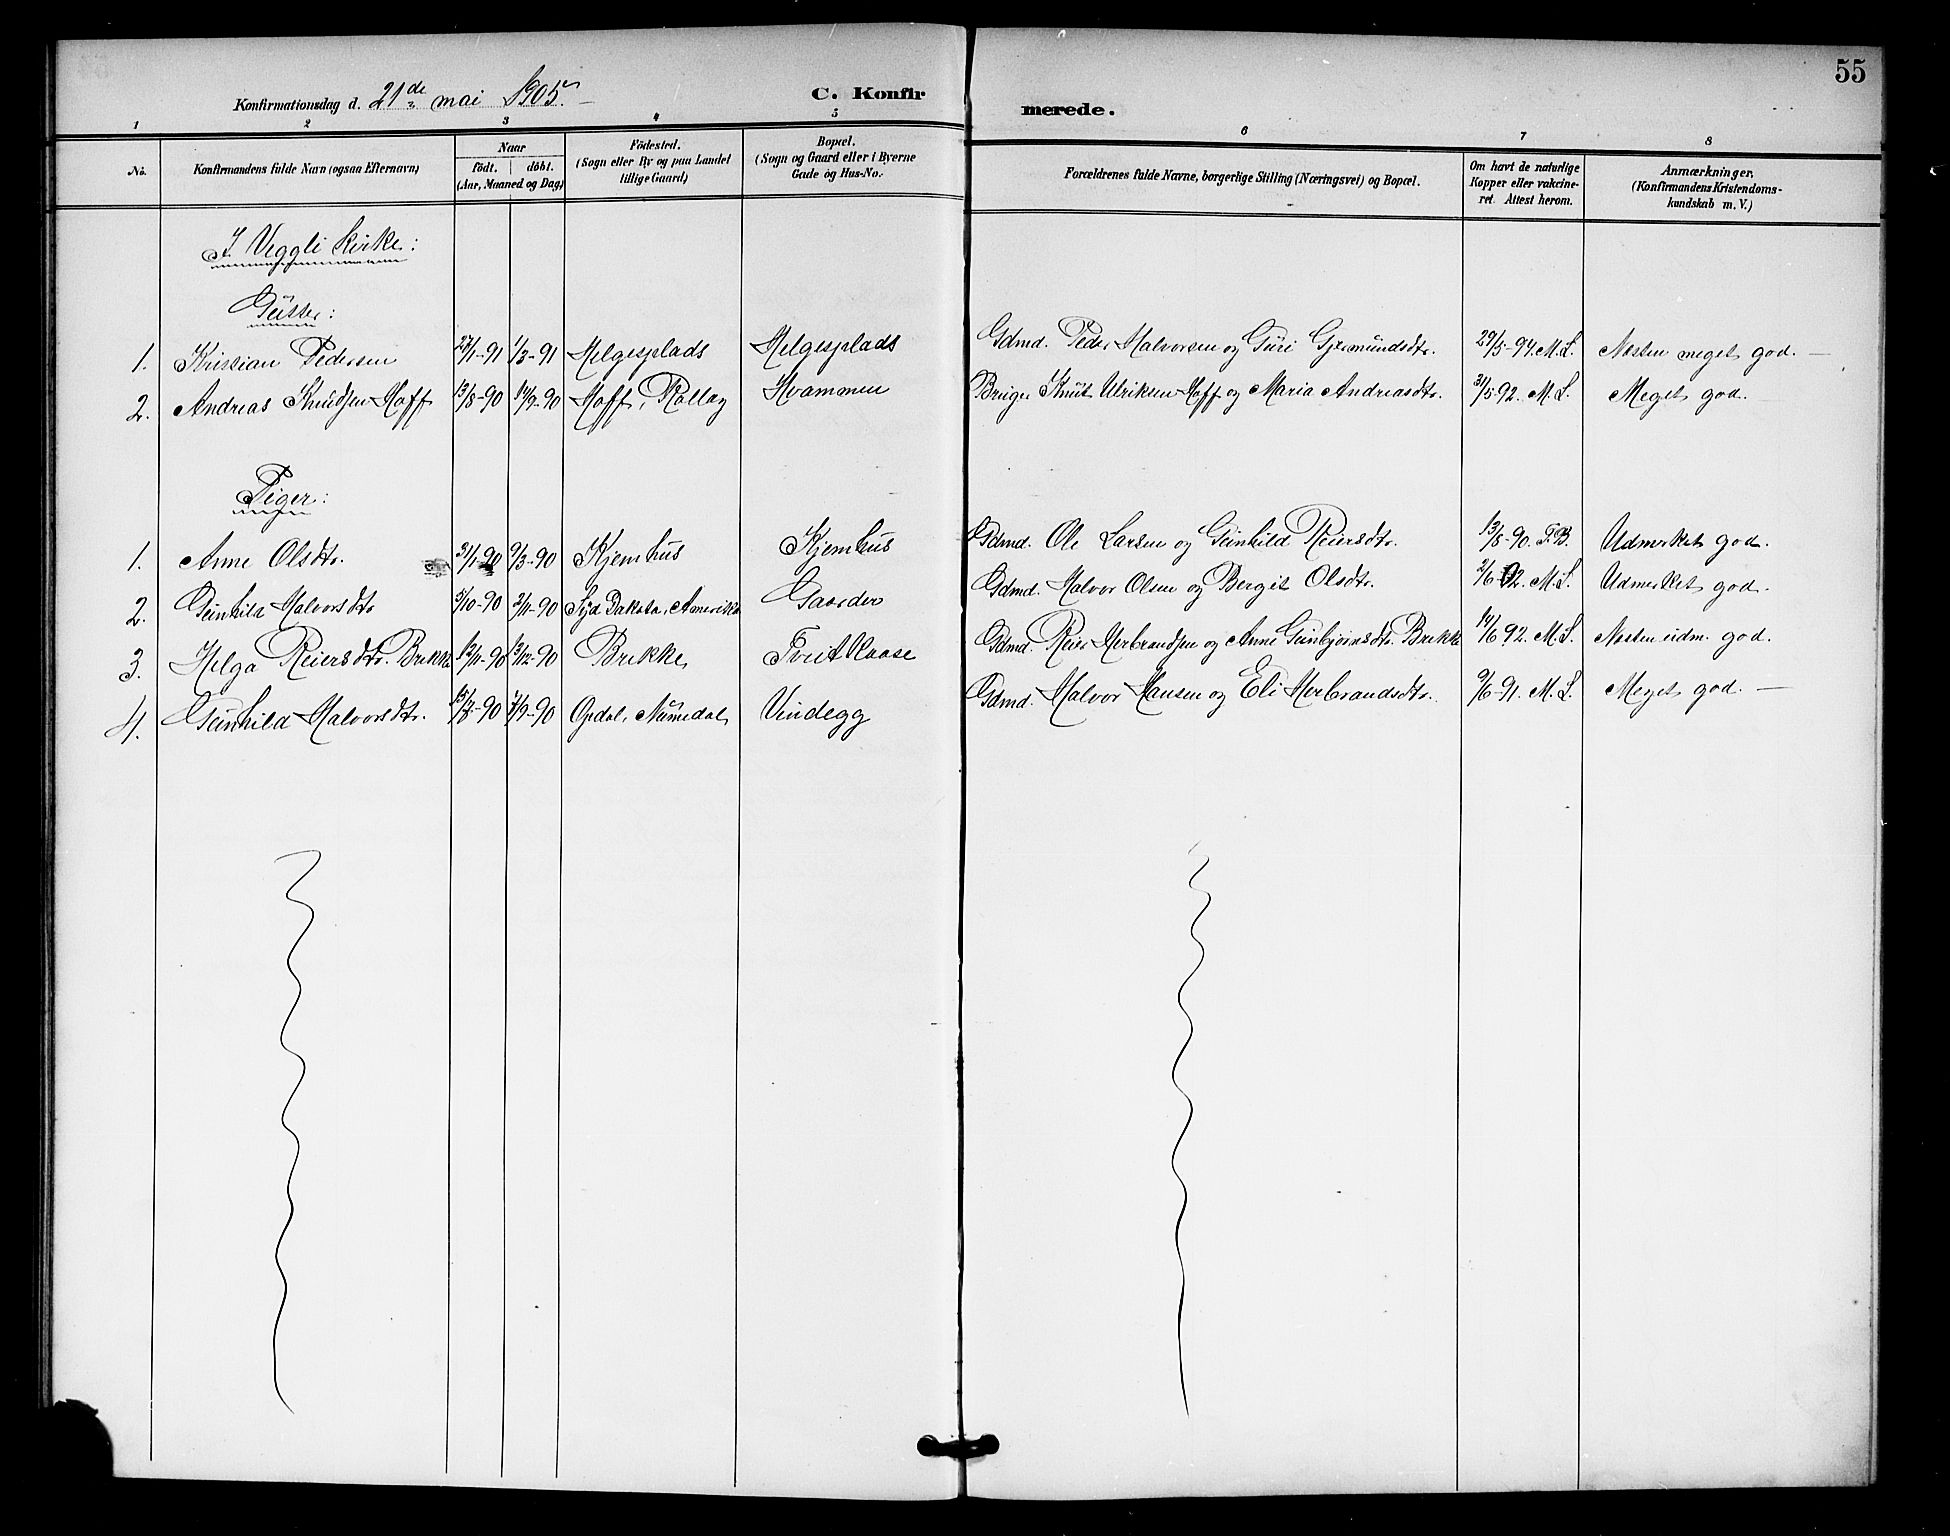 55
Konfirmationsdag d. 21de mai 1905. C. Konfirmerede.
1 2 3 4 5 6 7 8
No. Konfirmandens fulde Navn (ogsaa Efternavn) Naar født. døbt. (Aar, Maaned og Dag) Födested. (Sogn eller By og paa Landet tillige Gaard) Bopæl. (Sogn og Gaard eller i Byerne Gade og Hus-No. Forældrenes fulde Navne, borgerlige Stilling (Næringsvei) og Bopæl. Om havt de naturlige Kopper eller vakcineret. Attest herom. Anmærkninger. (Konfirmandens Kristendomskundskab m. V.)
I Veggli kirke:
Gutter:
1. Kristian Pedersen 27/1-91 1/3-91 Helgesplads Helgesplads Gdmd. Peder Halvorsen og Guri Gjermundsdtr. 29/5-94 M.L. Næsten meget god. —
2. Andreas Knudsen Hoff 13/8-90 14/9-90 Hoff, Rollag Hvammen Bruger Knut Ulriksen Hoff og Maria Andreasdtr. 31/5-92. M.L. Meget god.
Piger:
1. Anne Olsdtr. 31/1-90 9/3-90 Kjemhus Kjemhus Gdmd. Ole Larsen og Gunhild Reiersdtr. 13/8-90. T.B. Udmerket god.
2. Gunhild Halvorsdtr 5/10-90 2/11-90 Syd Dakota, Amerika Gaarder Gdmd. Halvor Olsen og Bergit Olsdtr. 2/6 92. M.L. Udmerket god.
3. Helga Reiersdtr. Brekke 12/11-90 13/12-90 Brekke Tveit Raase Gdmd. Reier Herbrandsen og Anne Gunbjørnsdtr. Brekke 14/6 92. M.L. Næsten udm. god.
4. Gunhild Halvorsdtr. 15/8-90 7/9-90 Opdal, Numedal Vindegg Gdmd. Halvor Hansen og Eli Herbrandsdtr. 9/6-91. M.L. Meget god. —